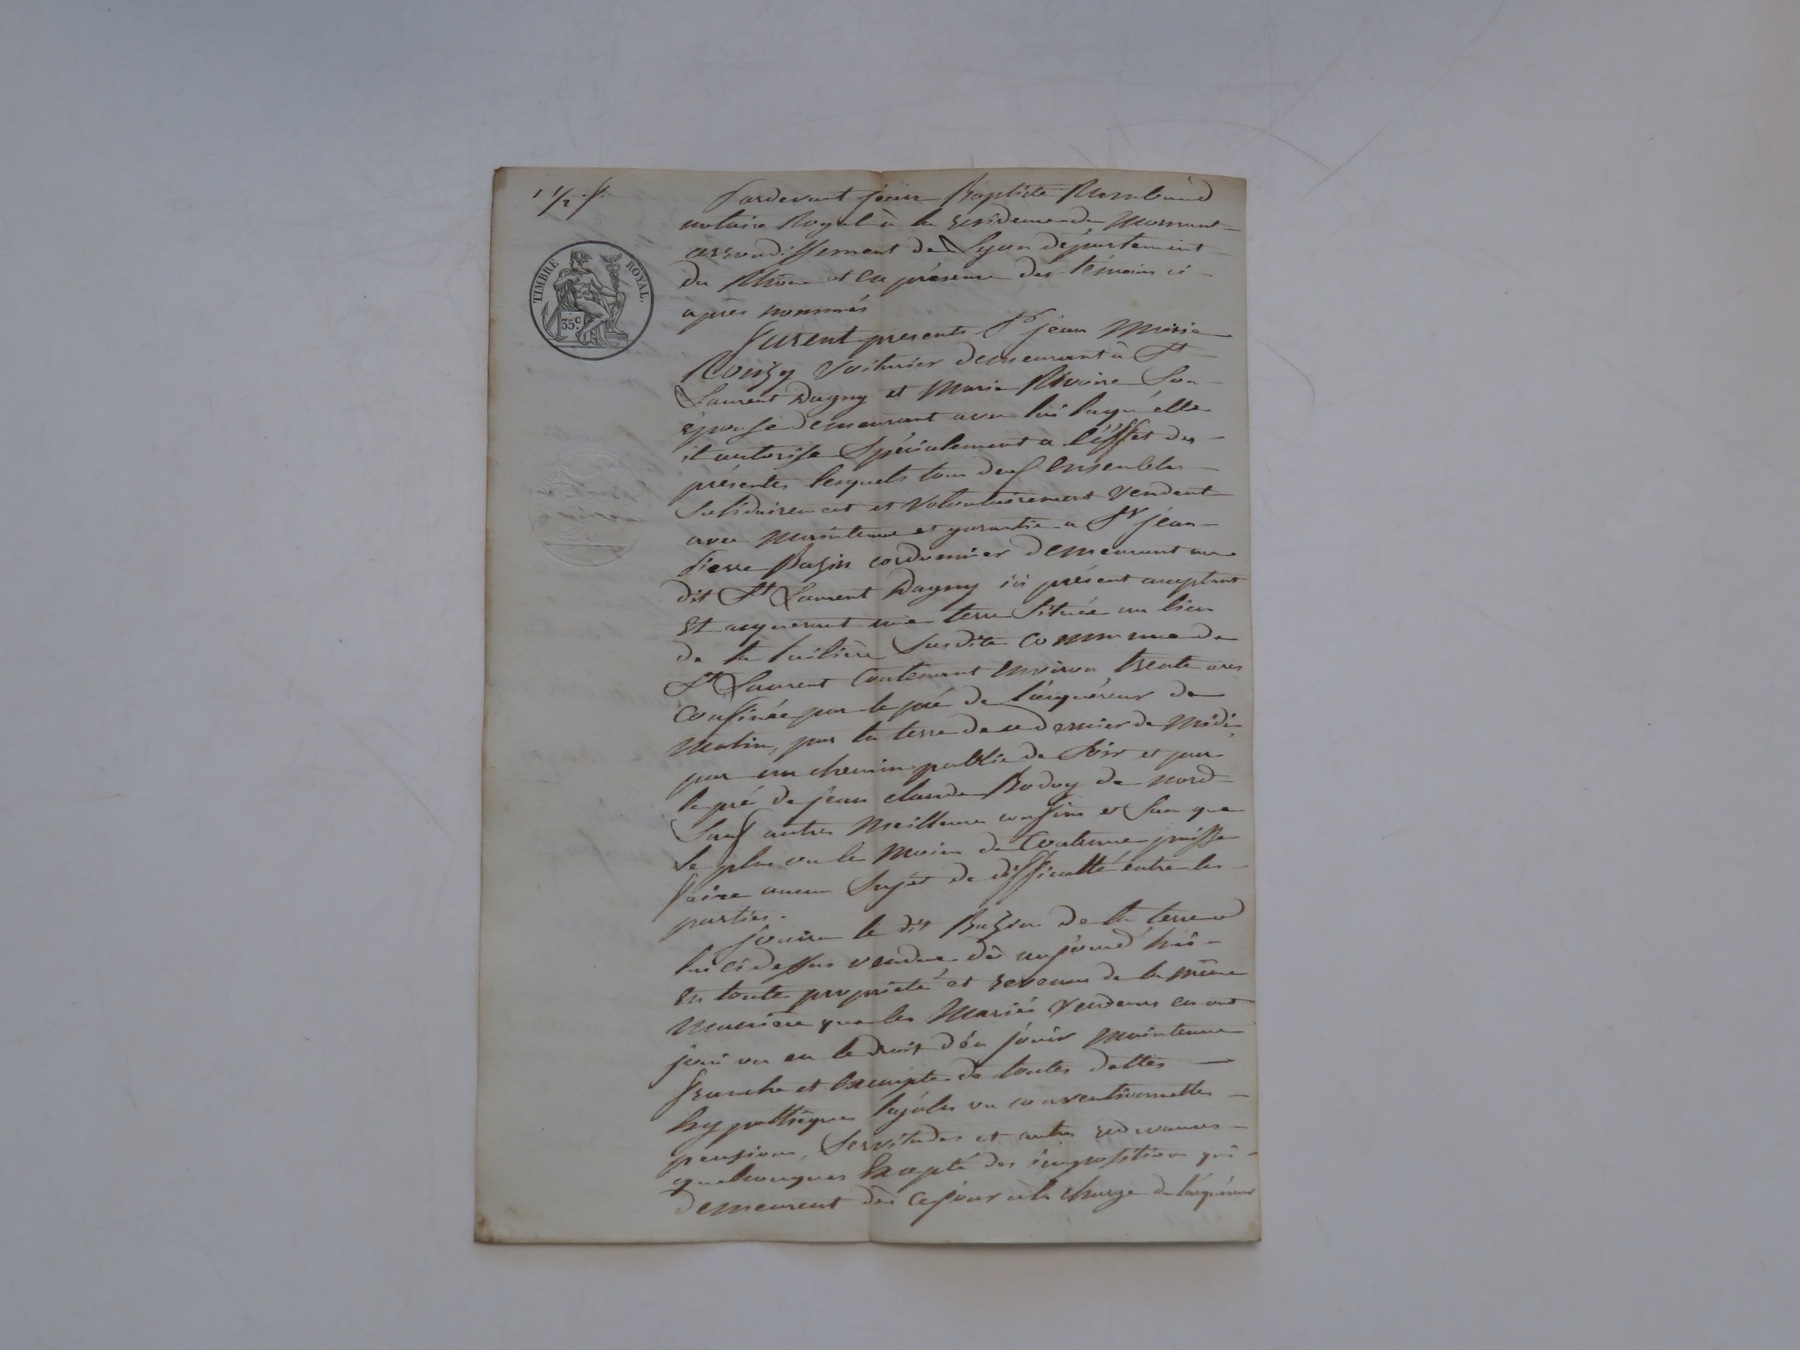 1 1/2 f.
TIMBRE ROYAL.
35 c
Pardevant Jean Baptiste Rimbaud
notaire Royal à la residence de Mornant
arrondissement de Lyon département
du Rhône et en présence des témoins ci
après nommés
furent presents Sr jean Marie
voiturier demeurant à St
Laurent Dagny et Marie Rivoire Son
épouse demeurant avec lui laqu'élle
il autorise Spécialement a l'éffet des
présentes lesquels tous deux Ensembles
Solidairement et Volontairement Vendent
avec Maintenue et garantie a Sr jean
Pierre Bazin cordonnier demeurant au
dit St Laurent Dagny ici présent acceptant
Et acquerant une terre Située au lieu
de la tuilière Susdite commune de
St Laurent Contenant Environ trente ares
Confinée par le pré de l'acquéreur de
Matin, par la terre de ce dernier de Midi,
par un chemin public de Soir et par
le pré de jean claude Bodoy de nord
Sauf autres Meilleurs confins et San que
le plus ou le Moins de Contenue puisse
faire aucun Sujet de difficulté entre les
parties.
jouira le dit Bazin de la terre a
lui ci dessus vendue dès aujourd'hui
En toute propriété et revenus de la même
Manière que les Mariés Vendeurs en ont
joui ou eu le droit d'en jouir Maintenue
franche et Exempte de toutes dettes
hypothèques légales ou conventionnelles
pensions, Servitudes et autres redevances
quelconques Excepté des impositions qui
demeurent dès ce jour à la charge de l'acquéreur